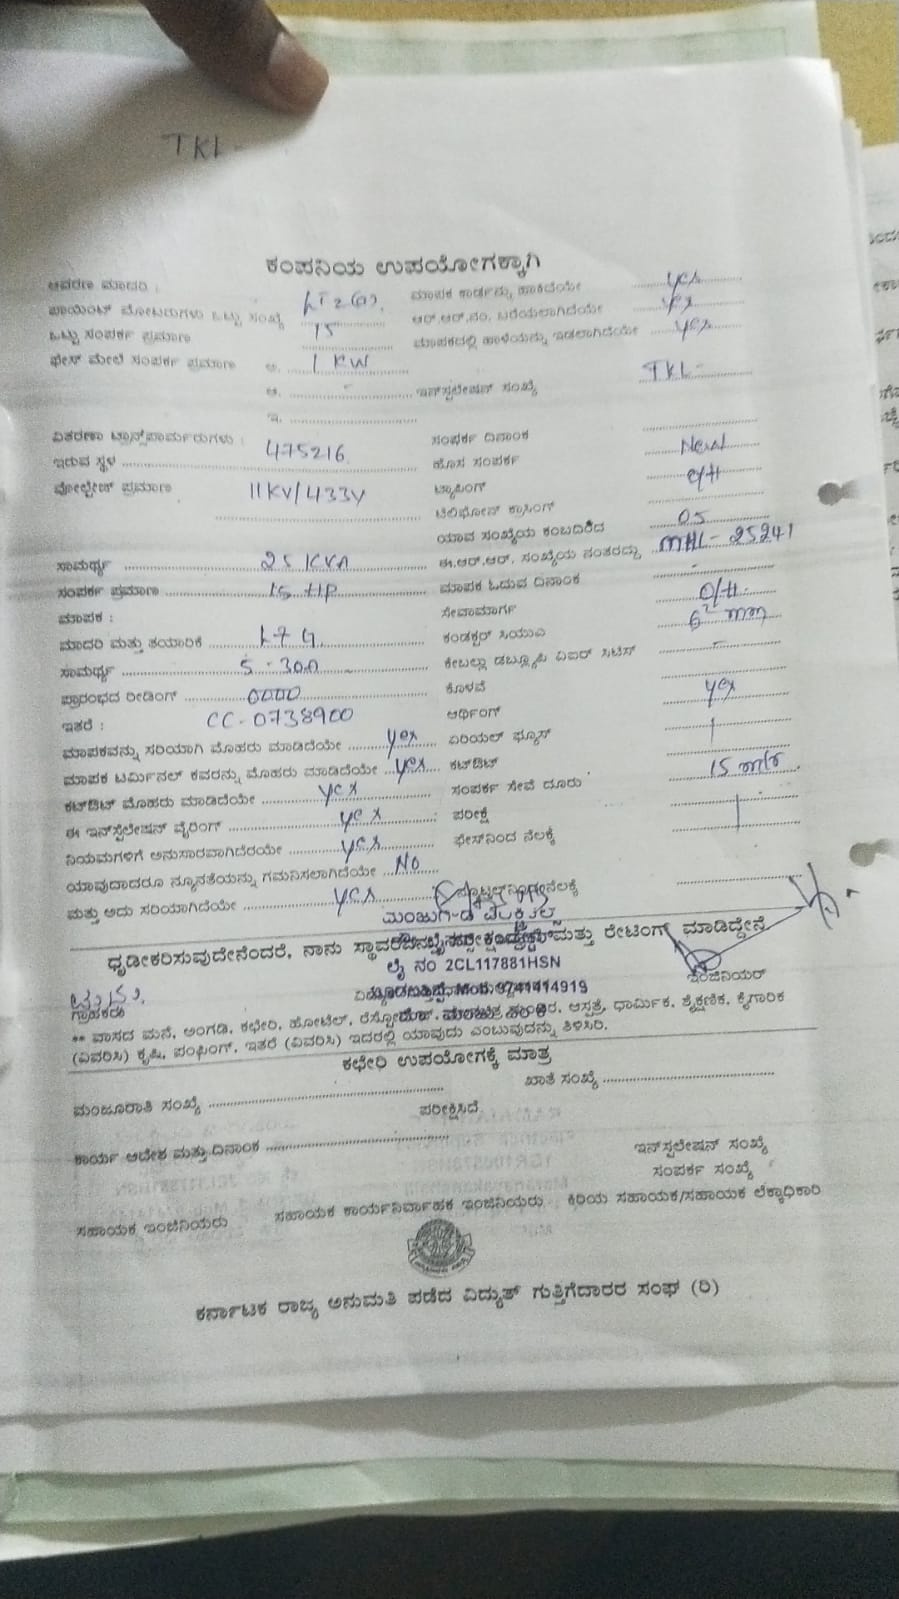 TKL -
ಕಂಪನಿಯ ಉಪಯೋಗಕ್ಕಾಗಿ
ಆವರಣ ಮಾದರಿ : LT 2(a). ಮಾಪಕ ಕಾರ್ಡನ್ನು ಹಾಕಿದೆಯೇ yes
ಪಾಯಿಂಟ್ ಮೋಟರುಗಳು ಒಟ್ಟು ಸಂಖ್ಯೆ 15 ಆರ್.ಆರ್.ನಂ. ಬರೆಯಲಾಗಿದೆಯೇ yes
ಒಟ್ಟು ಸಂಪರ್ಕ ಪ್ರಮಾಣ ಮಾಪಕದಲ್ಲಿ ಹಾಳೆಯನ್ನು ಇಡಲಾಗಿದೆಯೇ yes
ಫೇಸ್ ಮೇಲೆ ಸಂಪರ್ಕ ಪ್ರಮಾಣ ಅ. 1 KW
ಆ. - ಇನ್‌ಸ್ಟಲೇಷನ್ ಸಂಖ್ಯೆ TKL-
ಇ.
ವಿತರಣಾ ಟ್ರಾನ್ಸ್‌ಫಾರ್ಮರುಗಳು : ಸಂಪರ್ಕ ದಿನಾಂಕ
ಇರುವ ಸ್ಥಳ 475216 ಹೊಸ ಸಂಪರ್ಕ New
ವೋಲ್ಟೇಜ್ ಪ್ರಮಾಣ 11KV/433V ಟ್ಯಾಪಿಂಗ್ o/H
ಟೆಲಿಫೋನ್ ಕ್ರಾಸಿಂಗ್
ಯಾವ ಸಂಖ್ಯೆಯ ಕಂಬದಿಂದ 05
ಸಾಮರ್ಥ್ಯ 25 KVA ಈ.ಆರ್.ಆರ್. ಸಂಖ್ಯೆಯ ನಂತರದ್ದು MHL - 25241
ಸಂಪರ್ಕ ಪ್ರಮಾಣ 15 HP ಮಾಪಕ ಓದುವ ದಿನಾಂಕ -
ಮಾಪಕ : ಸೇವಾಮಾರ್ಗ O/H.
ಮಾದರಿ ಮತ್ತು ತಯಾರಿಕೆ L7G ಕಂಡಕ್ಟರ್ ಸಿಯುವಿ 6² mm
ಸಾಮರ್ಥ್ಯ 5 - 30A -
ಪ್ರಾರಂಭದ ರೀಡಿಂಗ್ 0000 ಕೊಳವೆ
ಇತರೆ : CC-0738900 ಅರ್ಥಿಂಗ್ yes
ಮಾಪಕವನ್ನು ಸರಿಯಾಗಿ ಮೊಹರು ಮಾಡಿದೆಯೇ yes ಏರಿಯಲ್ ಫ್ಯೂಸ್
ಮಾಪಕ ಟರ್ಮಿನಲ್ ಕವರನ್ನು ಮೊಹರು ಮಾಡಿದೆಯೇ yes ಕಟ್‌ಔಟ್
ಕಟ್‌ಔಟ್ ಮೊಹರು ಮಾಡಿದೆಯೇ yes ಸಂಪರ್ಕ ಸೇವೆ ದೂರು 15 mtr.
ಈ ಇನ್‌ಸ್ಟಲೇಷನ್ ವೈರಿಂಗ್ yes ಪರೀಕ್ಷೆ
ನಿಯಮಗಳಿಗೆ ಅನುಸಾರವಾಗಿದೆಯೇ yes ಫೇಸ್‌ನಿಂದ ನೆಲಕ್ಕೆ
ಯಾವುದಾದರೂ ನ್ಯೂನತೆಯನ್ನು ಗಮನಿಸಲಾಗಿದೆಯೇ No
ಮತ್ತು ಅದು ಸರಿಯಾಗಿದೆಯೇ yes
ದೃಢೀಕರಿಸುವುದೇನೆಂದರೆ, ನಾನು ಮತ್ತು ರೇಟಿಂಗ್ ಮಾಡಿದ್ದೇನೆ
ಲೈ ನಂ 2CL117881HSN
ಇಂಜಿನಿಯರ್
Mob. 9741414919
ಗ್ರಾಹಕರು
** ವಾಸದ ಮನೆ, ಅಂಗಡಿ, ಕಛೇರಿ, ಹೋಟೆಲ್, ಆಸ್ಪತ್ರೆ, ಧಾರ್ಮಿಕ, ಶೈಕ್ಷಣಿಕ, ಕೈಗಾರಿಕ
(ವಿವರಿಸಿ) ಕೃಷಿ, ಪಂಪಿಂಗ್, ಇತರೆ (ವಿವರಿಸಿ) ಇದರಲ್ಲಿ ಯಾವುದು ಎಂಬುವುದನ್ನು ತಿಳಿಸಿರಿ.
ಕಛೇರಿ ಉಪಯೋಗಕ್ಕೆ ಮಾತ್ರ
ಮಂಜೂರಾತಿ ಸಂಖ್ಯೆ ಖಾತೆ ಸಂಖ್ಯೆ
ಪರೀಕ್ಷಿಸಿದೆ
ಕಾರ್ಯ ಆದೇಶ ಮತ್ತು ದಿನಾಂಕ
ಇನ್‌ಸ್ಟಲೇಷನ್ ಸಂಖ್ಯೆ
ಸಂಪರ್ಕ ಸಂಖ್ಯೆ
ಸಹಾಯಕ ಇಂಜಿನಿಯರು ಸಹಾಯಕ ಕಾರ್ಯನಿರ್ವಾಹಕ ಇಂಜಿನಿಯರು ಕಿರಿಯ ಸಹಾಯಕ/ಸಹಾಯಕ ಲೆಕ್ಕಾಧಿಕಾರಿ
ಕರ್ನಾಟಕ ರಾಜ್ಯ ಅನುಮತಿ ಪಡೆದ ವಿದ್ಯುತ್ ಗುತ್ತಿಗೆದಾರರ ಸಂಘ (ರಿ)